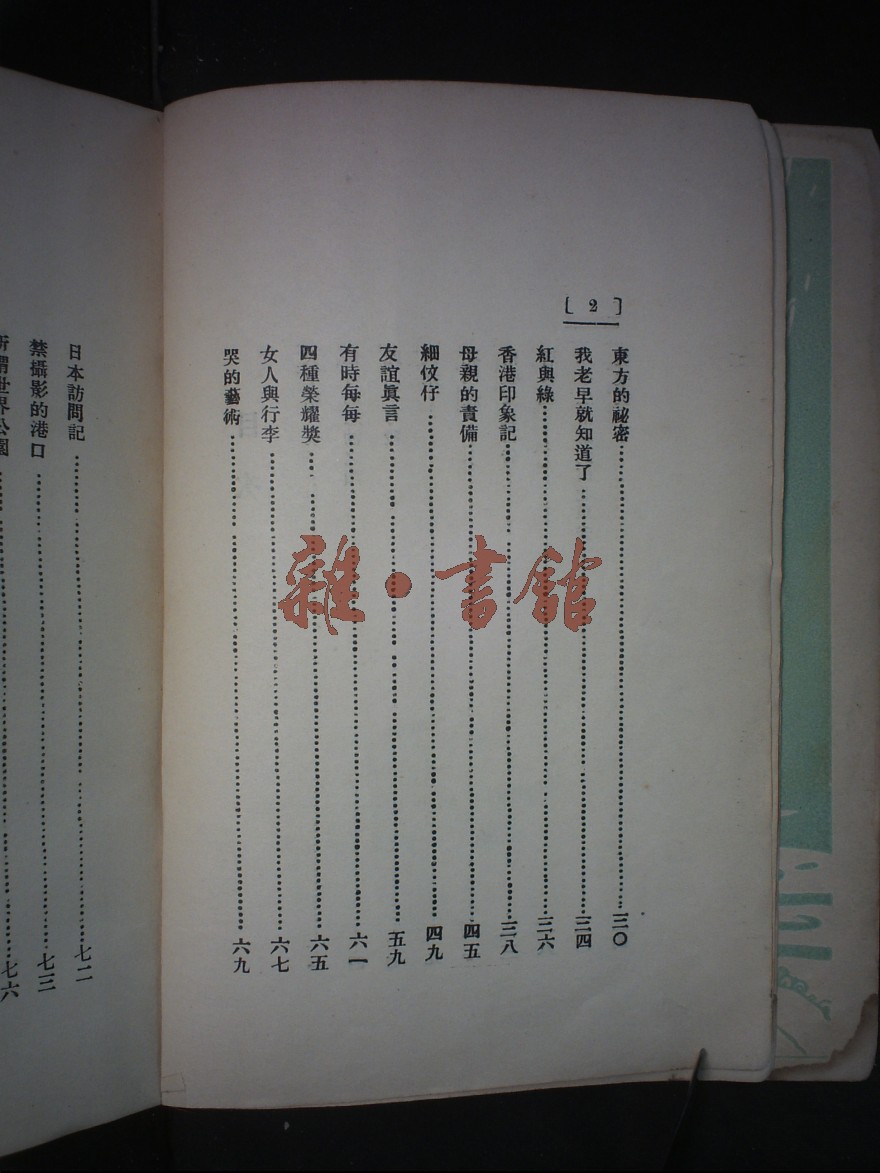 [ 2 ]
東方的祕密……三〇
我老早就知道了……三四
紅與綠……三六
香港印象記……三八
母親的責備……四五
細伩仔……四九
友誼眞言……五九
有時每每……六一
四種榮耀獎……六五
女人與行李……六七
哭的藝術……六九
日本訪問記……七二
禁攝影的港口……七三
所謂世界公園……七六
雜·書館